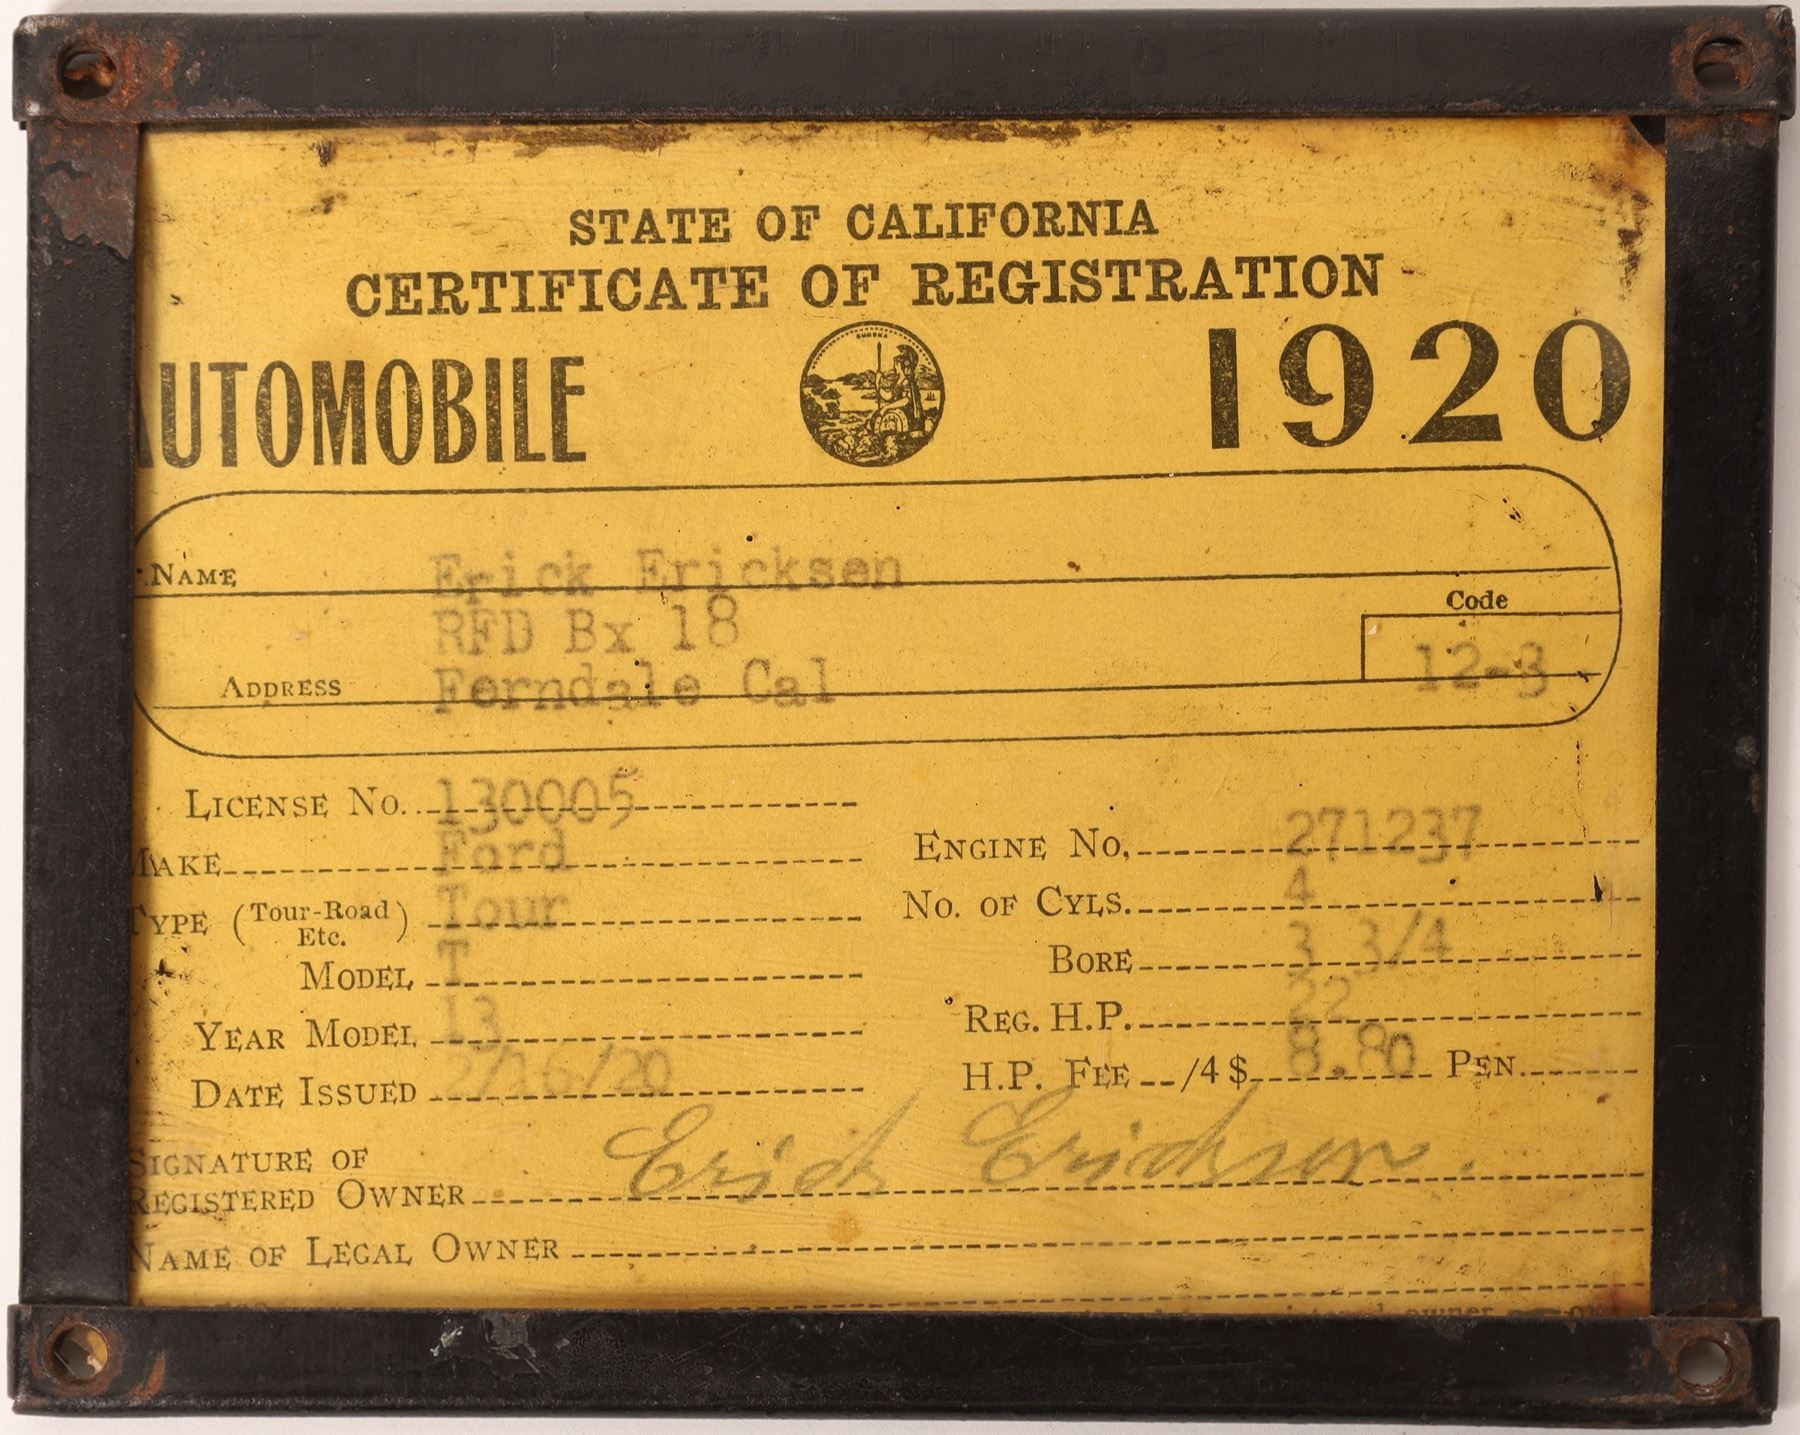 STATE OF CALIFORNIA
CERTIFICATE OF REGISTRATION
AUTOMOBILE 1920
EUREKA
NAME Erick Ericksen
RFD Bx 18
Code
ADDRESS Ferndale Cal 12-3
LICENSE NO. 130005
MAKE Ford
ENGINE NO. 271237
TYPE (Tour-Road Etc.) Tour
NO. OF CYLS. 4
MODEL T
BORE 3 3/4
YEAR MODEL 13
REG. H.P. 22
DATE ISSUED 2/16/20
H.P. FEE /4 $ 8.80 PEN.
SIGNATURE OF
REGISTERED OWNER Erick Ericksen.
NAME OF LEGAL OWNER
registered owner